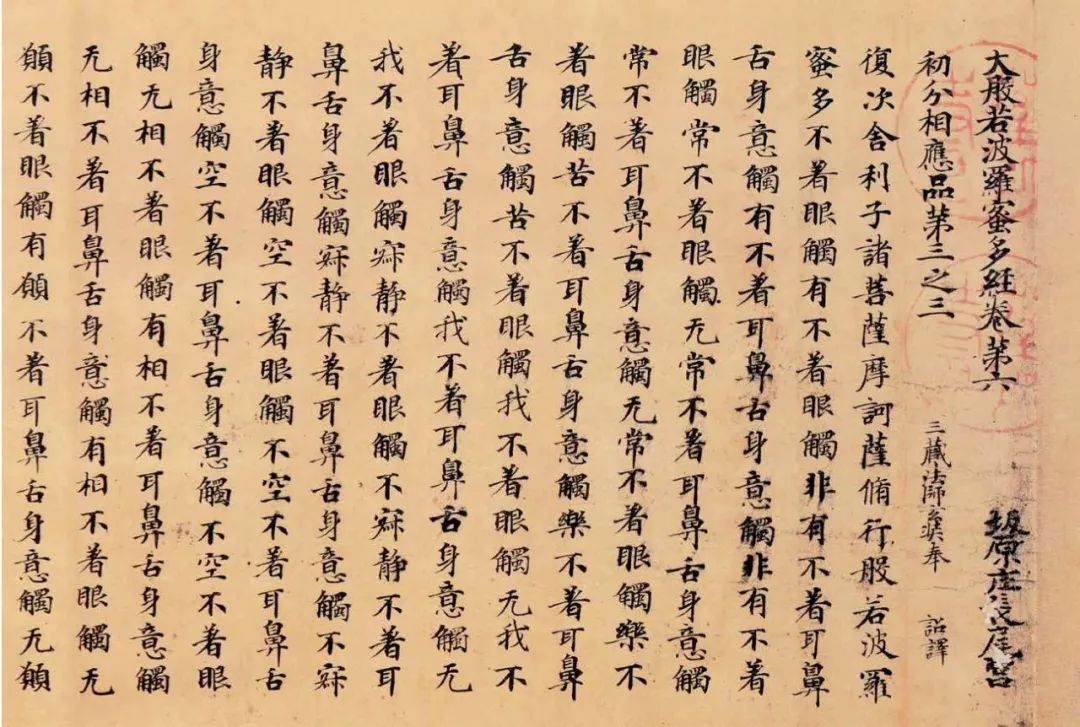 大般若波羅蜜多経卷第六
初分相應品第三之三 三藏法師玄奘奉 詔譯
復次舍利子諸菩薩摩訶薩脩行般若波羅
蜜多不着眼觸有不着眼觸非有不着耳鼻
舌身意觸有不着耳鼻舌身意觸非有不着
眼觸常不着眼觸无常不着耳鼻舌身意觸
常不着耳鼻舌身意觸无常不着眼觸樂不
着眼觸苦不着耳鼻舌身意觸樂不着耳鼻
舌身意觸苦不着眼觸我不着眼觸无我不
着耳鼻舌身意觸我不着耳鼻舌身意觸无
我不着眼觸寂静不着眼觸不寂静不着耳
鼻舌身意觸寂静不着耳鼻舌身意觸不寂
静不着眼觸空不着眼觸不空不着耳鼻舌
身意觸空不着耳鼻舌身意觸不空不着眼
觸无相不着眼觸有相不着耳鼻舌身意觸
无相不着耳鼻舌身意觸有相不着眼觸无
願不着眼觸有願不着耳鼻舌身意觸无願